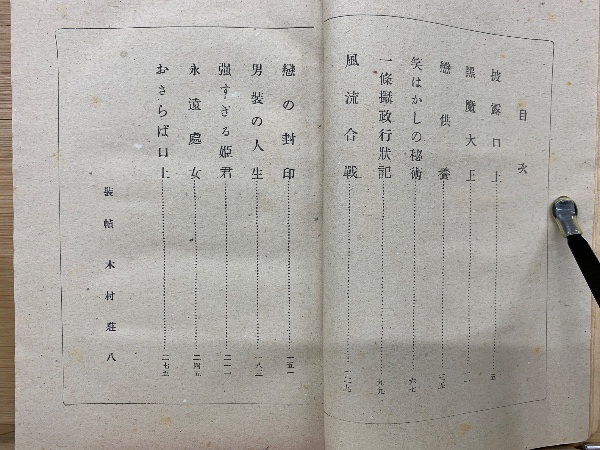 目次
披露口上 五
黒魔大王
戀供養
笑はかしの秘術 六七
一條攝政行狀記 九九
風流合戰
戀の封印 一五一
男裝の人生 一八三
强すぎる姬君 二一一
永遠處女 二四五
おさらば口上 二七五
裝幀 木村莊八